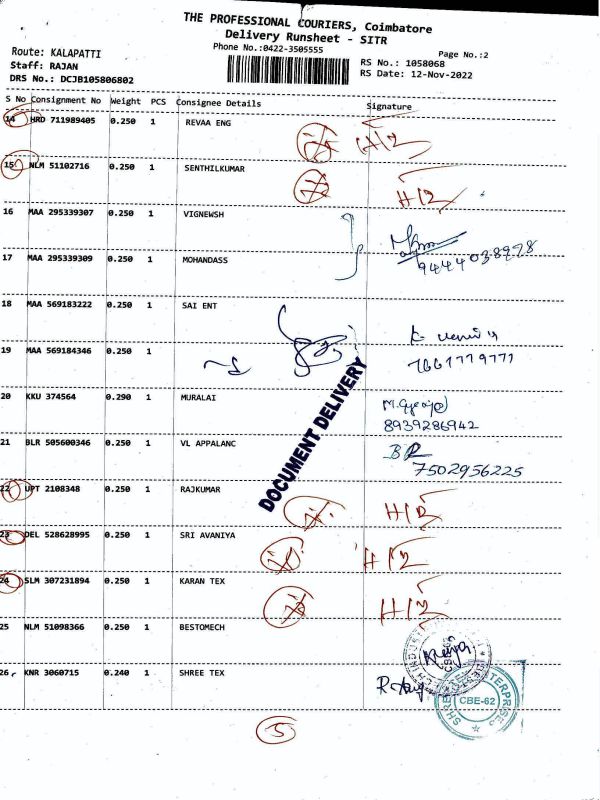 THE PROFESSIONAL COURIERS, Coimbatore
Delivery Runsheet - SITR
Phone No.:0422-3505555
Page No.:2
Route: KALAPATTI
Staff: RAJAN
DRS No.: DCJB105806802
RS No.: 1058068
RS Date: 12-Nov-2022
S No Consignment No Weight PCS Consignee Details Signature
14 HRD 711989405 0.250 1 REVAA ENG H12
15 NLM 51102716 0.250 1 SENTHILKUMAR H12
16 MAA 295339307 0.250 1 VIGNEWSH
17 MAA 295339309 0.250 1 MOHANDASS
9444038978
18 MAA 569183222 0.250 1 SAI ENT
19 MAA 569184346 0.250 1
7661779771
20 KKU 374564 0.290 1 MURALAI
8939286942
21 BLR 505600346 0.250 1 VL APPALANC
7502956225
DOCUMENT DELIVERY
22 UPT 2108348 0.250 1 RAJKUMAR H12
23 DEL 528628995 0.250 1 SRI AVANIYA H12
24 SLM 307231894 0.250 1 KARAN TEX H12
25 NLM 51098366 0.250 1 BESTOMECH
26 KNR 3060715 0.240 1 SHREE TEX
CBE-62
5